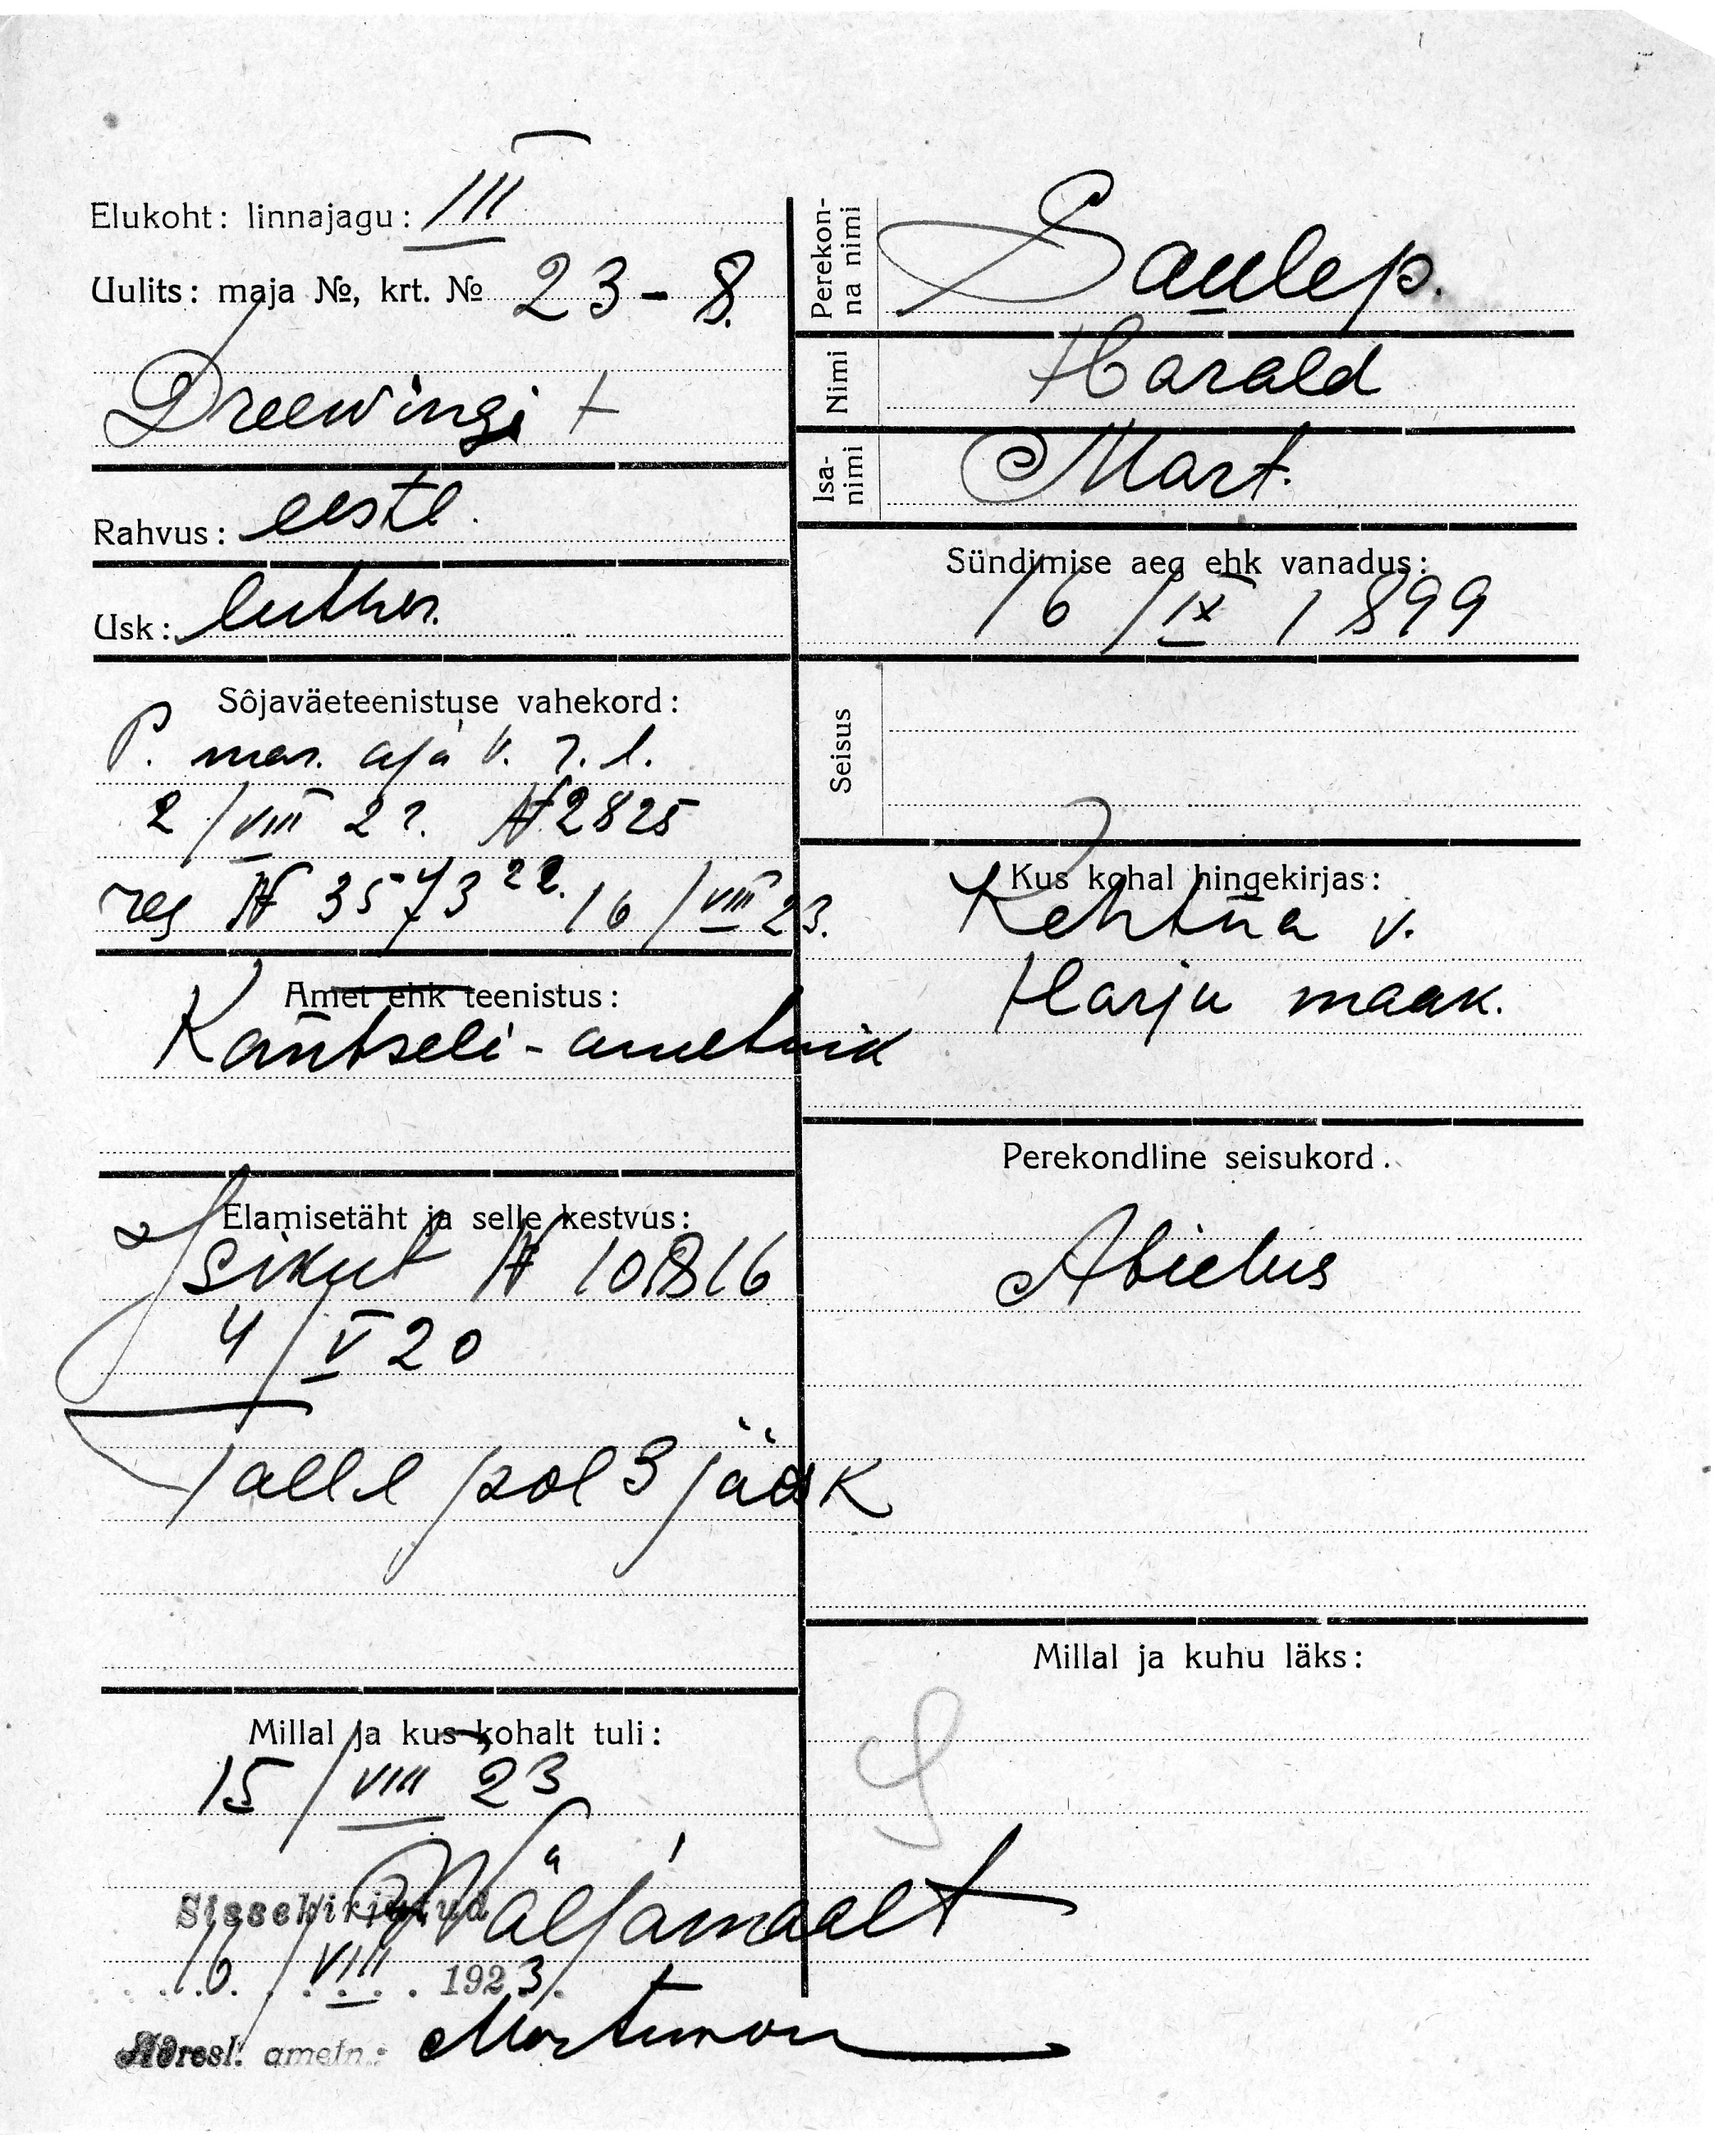 Elukoht: linnajagu: III
Uulits: maja №, krt. № 23 - 8.
Dreewingi t
Rahvus: eestl.
Usk: luther.
Sôjaväeteenistuse vahekord:
P. mar. aja v. r. l.
2/VIII 22. № 2825
reg № 3573 22. 16/VIII 23.
Amet ehk teenistus:
Kantseli-ametnik
Elamisetäht ja selle kestvus:
Isikut № 10816
4/V 20
Tall pol 3 jaosk
Millal ja kus kohalt tuli:
15/VIII 23
Väljamaalt
Sissekirjutud
16. VIII 1923.
Adresl. ametn.:
Perekonna nimi
Saulep.
Nimi
Harald
Isanimi
Mart.
Sündimise aeg ehk vanadus:
16/IX 1899
Seisus
Kus kohal hingekirjas:
Kehtna v.
Harju maak.
Perekondline seisukord.
Abielus
Millal ja kuhu läks: